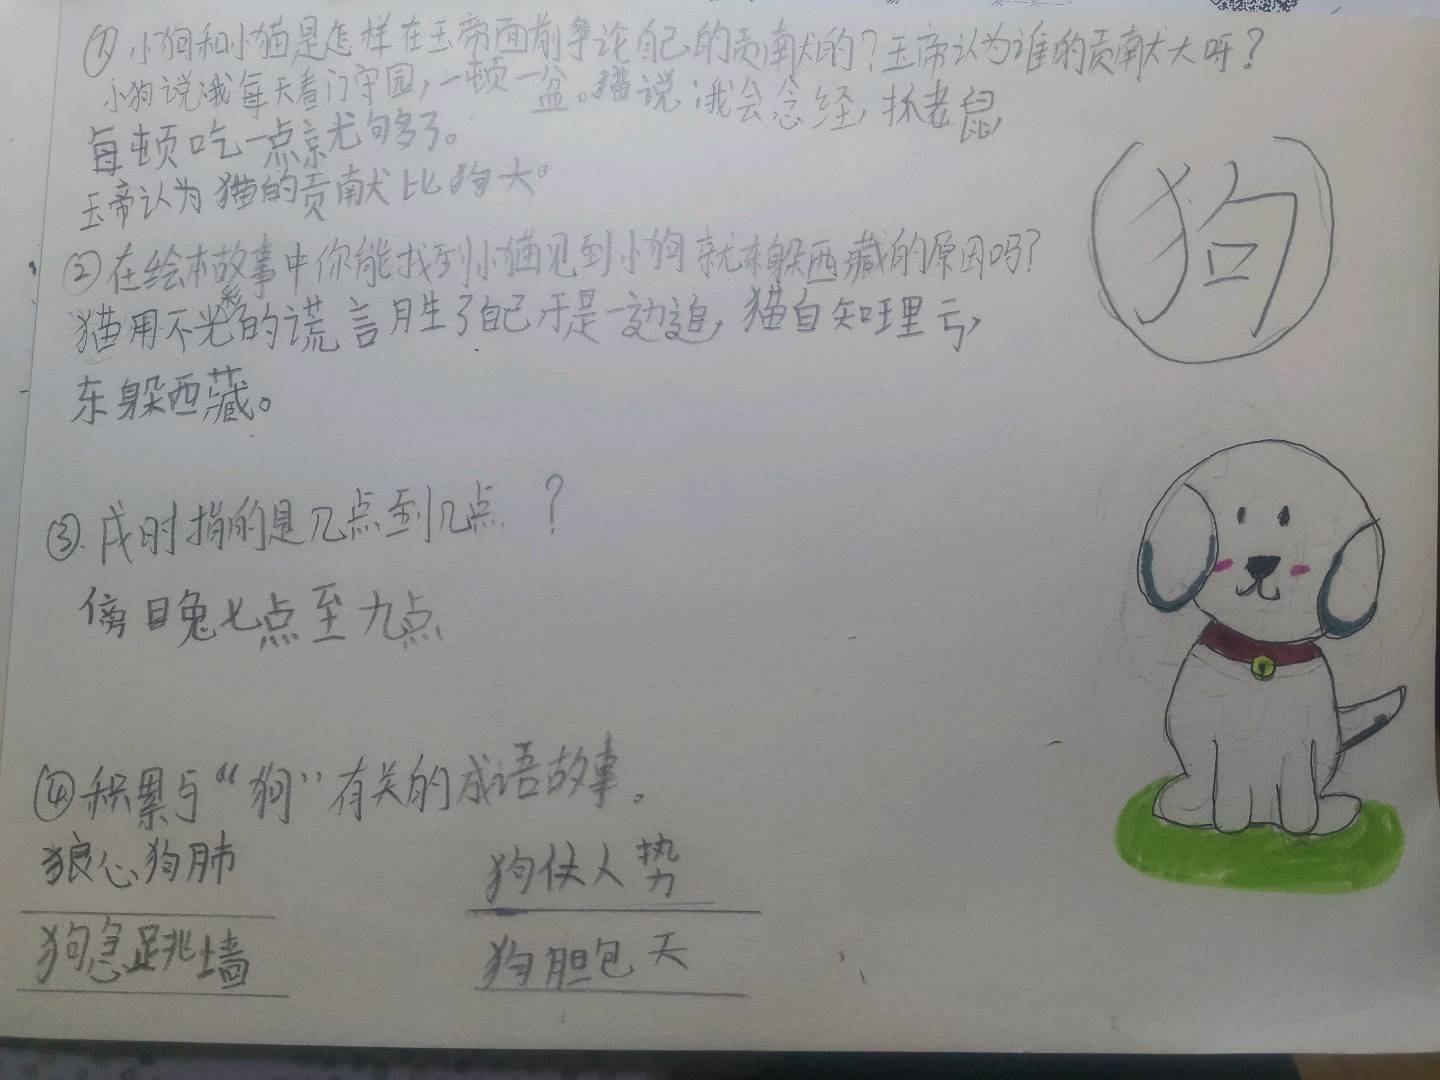 ① 小狗和小猫是怎样在玉帝面前争论自己的贡献的?玉帝认为谁的贡献大呀?
小狗说:我每天看门守园,一顿一盆。猫说:我会念经,抓老鼠,
每顿吃一点京尤句多了。
玉帝认为猫的贡献比狗大。
② 在绘本故事中你能找到小猫见到小狗就东躲西藏的原因吗?
猫用不光彩的谎言胜了自己于是一边追,猫自知理亏,
东躲西藏。
③. 戌时指的是几点到几点?
傍晚七点至九点
④ 积累与“狗”有关的成语故事。
狼心狗肺 狗仗人势
狗急跳墙 狗胆包天
狗